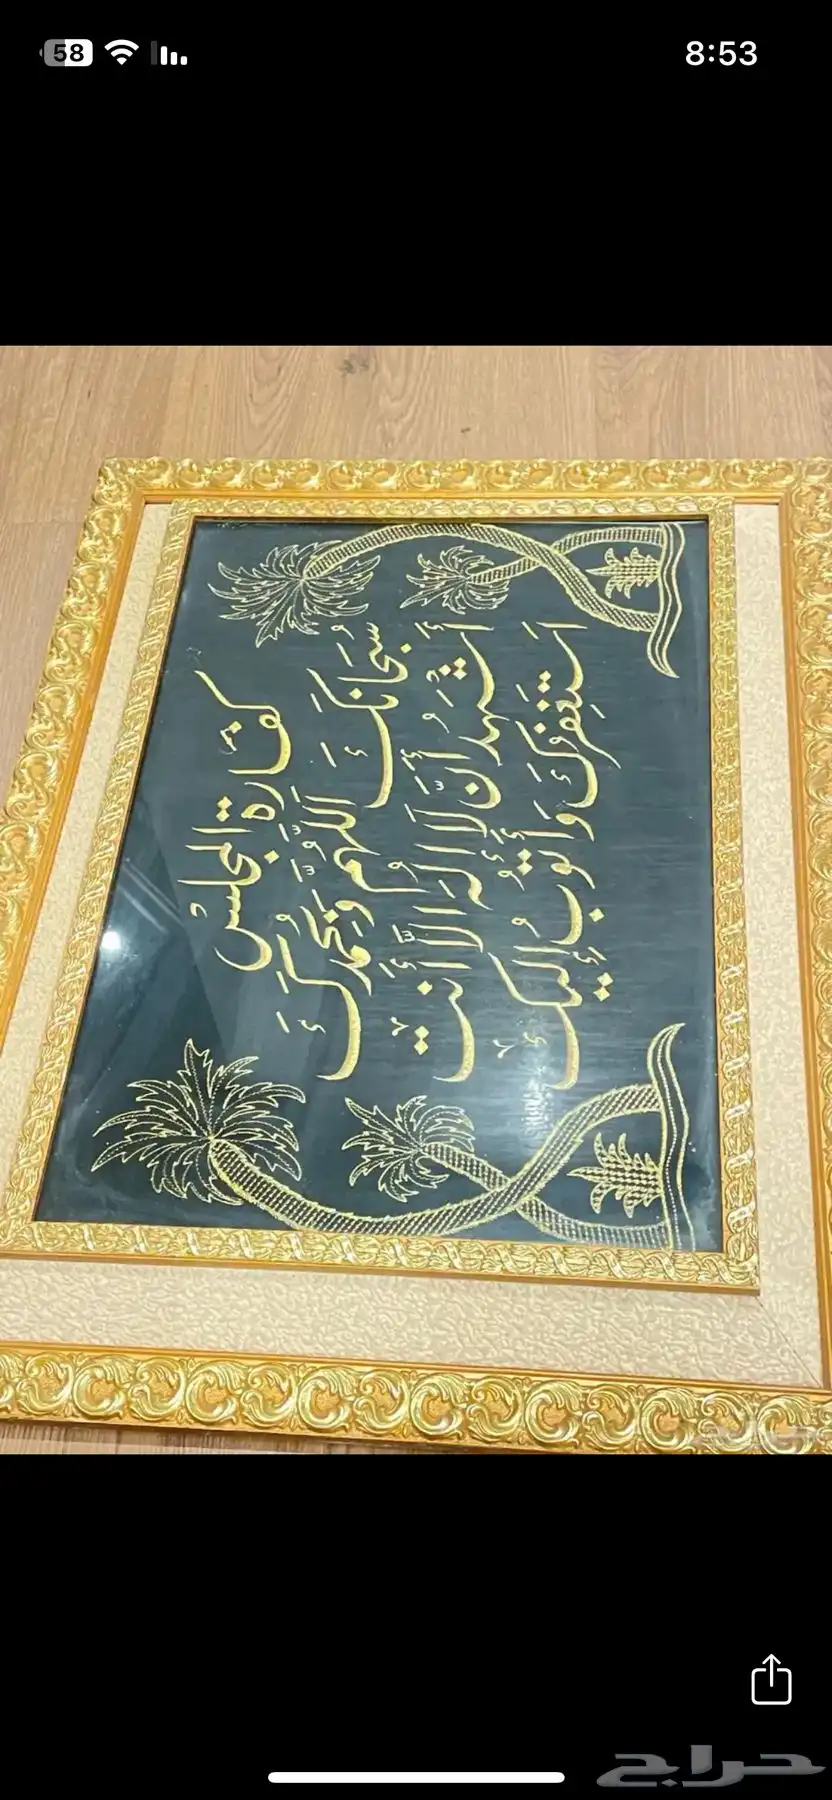 58
8:53
كفارة المجلس
سُبحَانَكَ اللَّهُمَّ وَبِحَمدُكَ
أَشْهَدُ أَنَّ لَا اِلَهَ اِلاَّ أَنت
اَستَغفِرُكَ وَأَتُوبُ اِلَيكَ
حراج